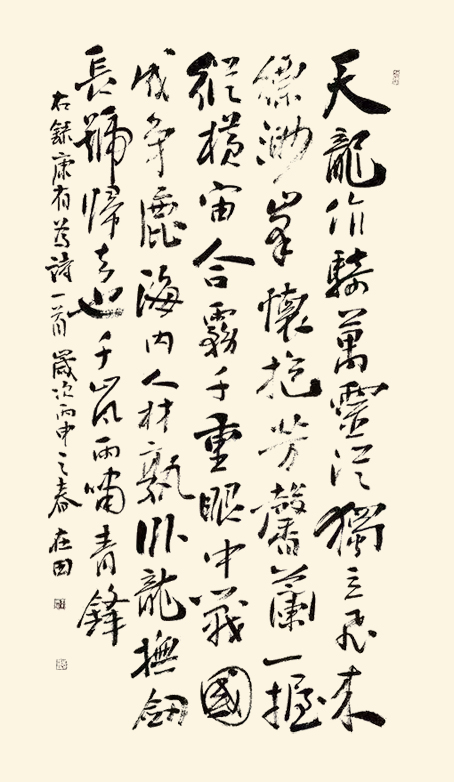 天龍作騎萬靈從獨立飛來
縹緲峯懷抱芳馨蘭一握
縱橫宙合霧千重眼中戰國
成爭鹿海内人材孰臥龍撫劍
長號歸去也千山風雨嘯青鋒
右錄康有為詩一首歲次丙申之春在田